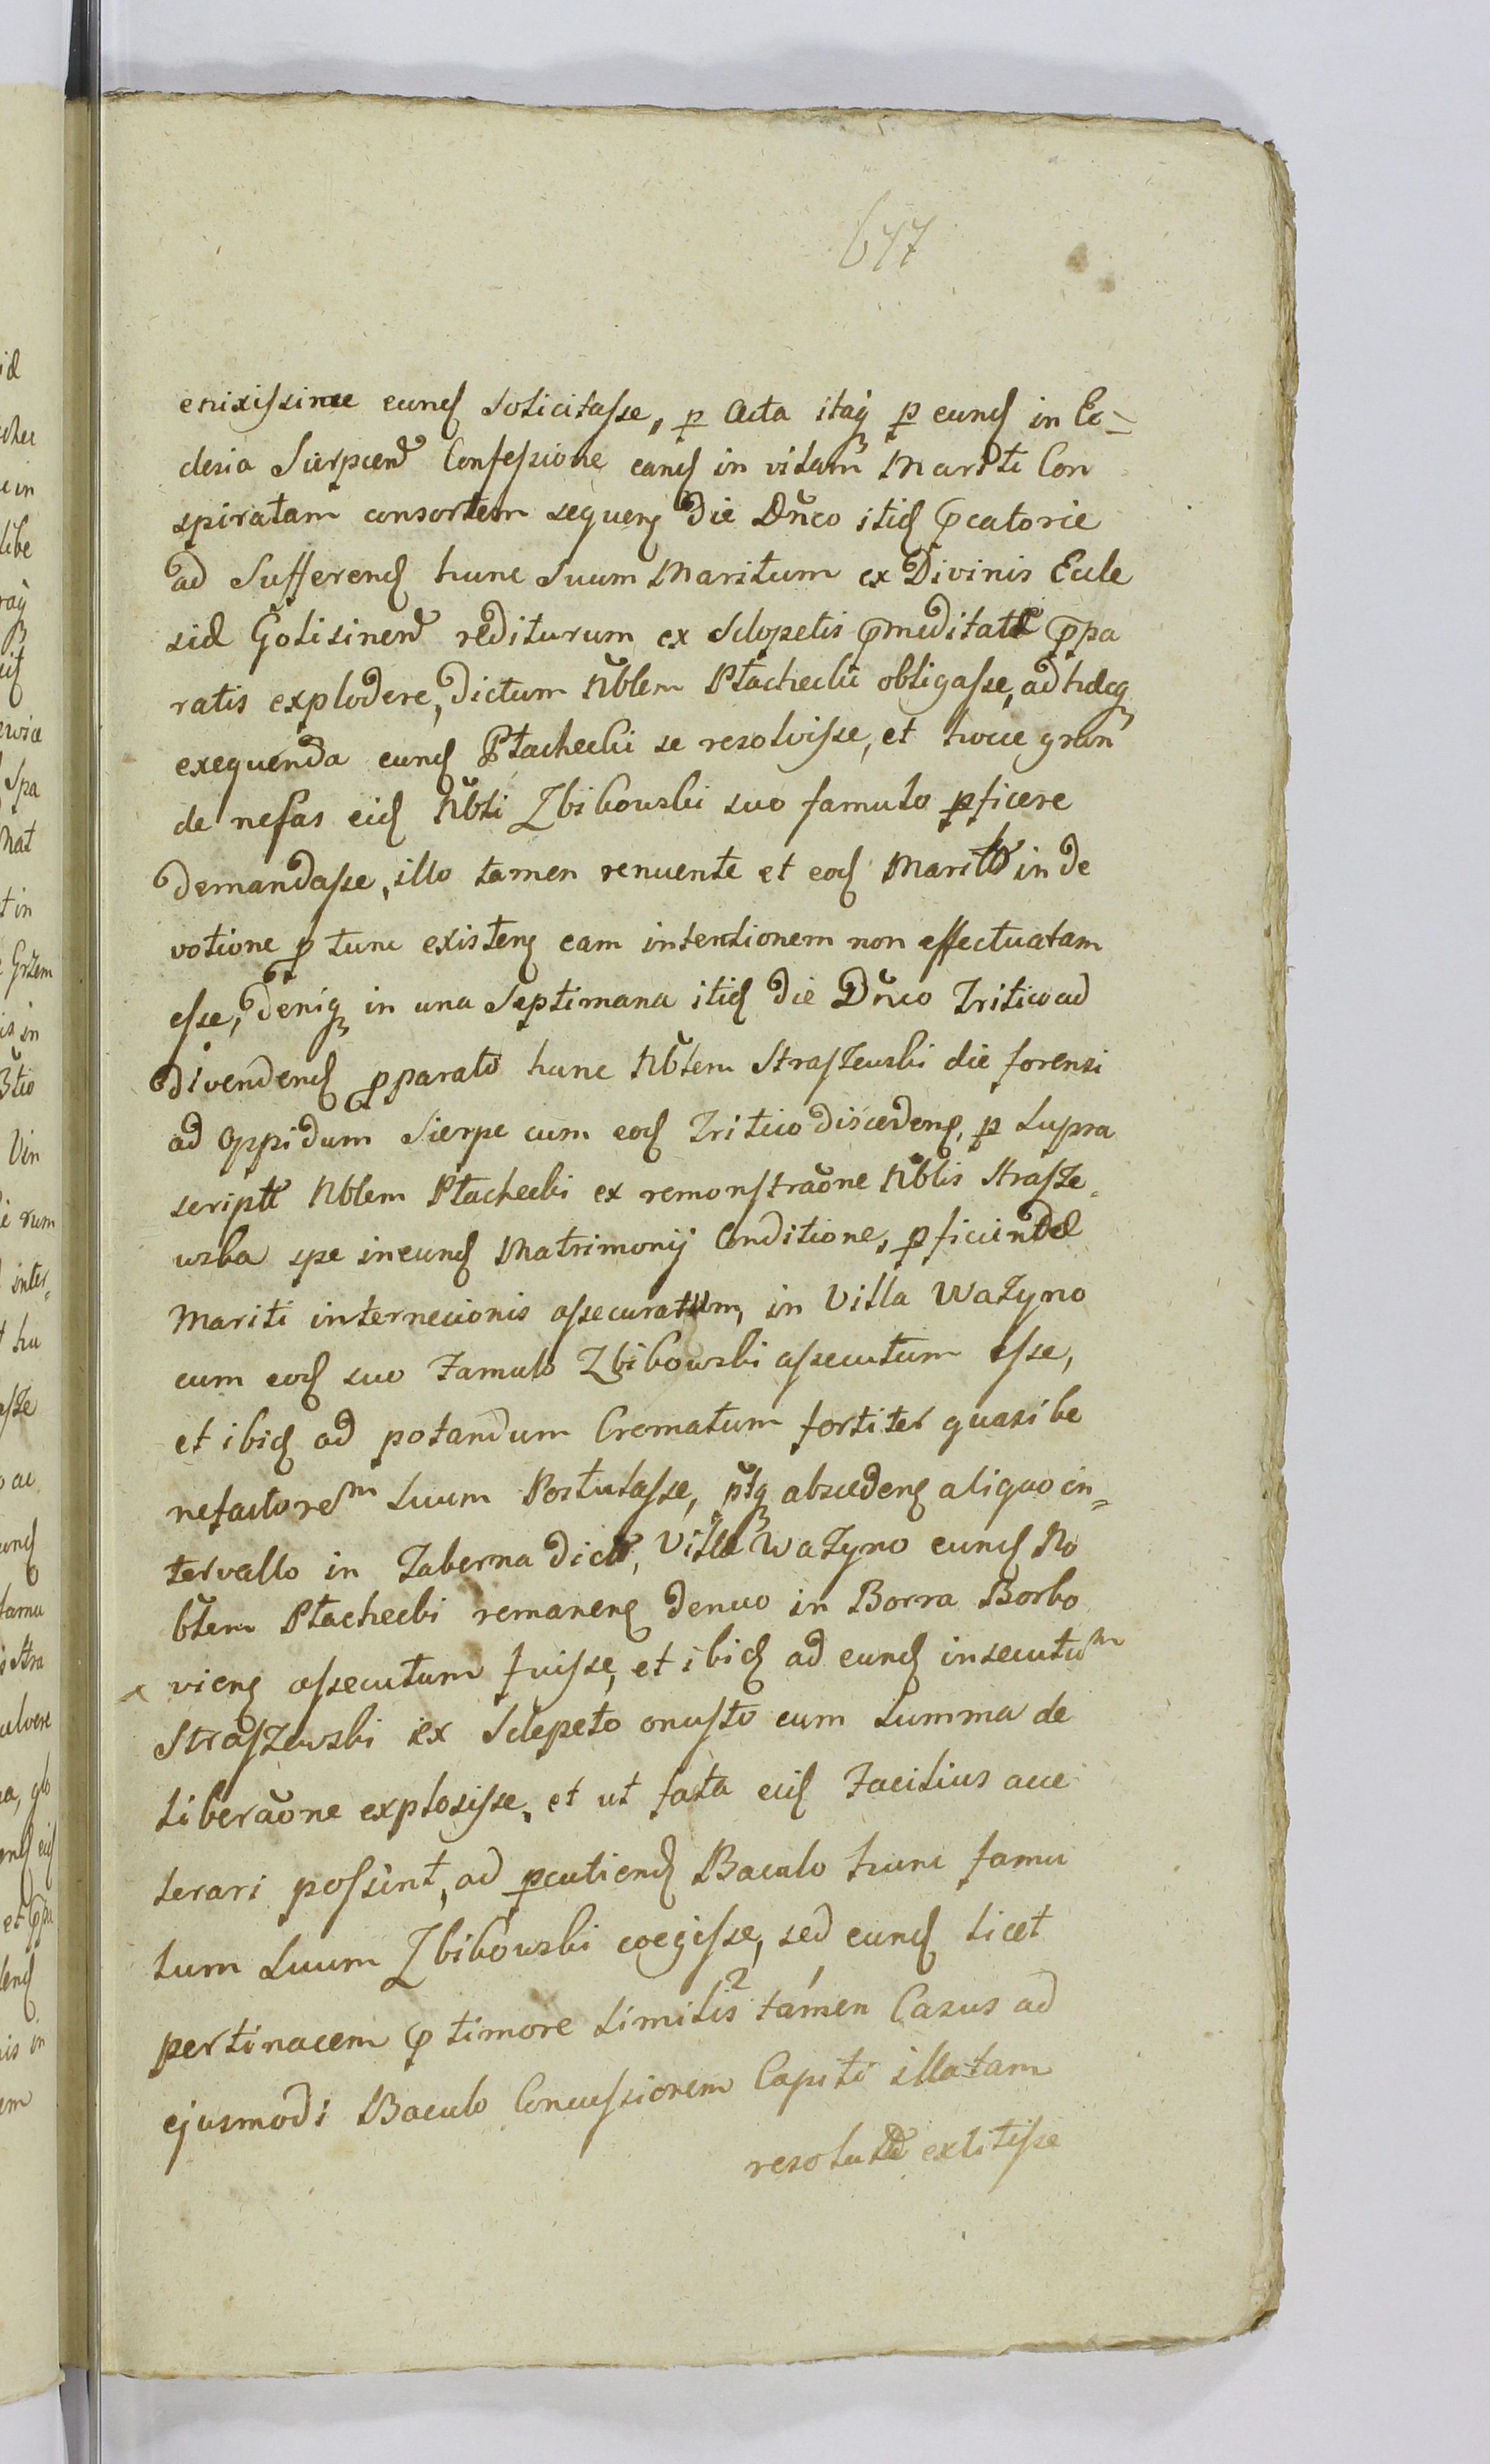 647
enixissime eund solicitasse, p Acta itaq p eund in Ec=
clesia Sierpcen Confessione eand in vitam Mariti Con
spiratam consortem sequen die Dnco itid precatorie
ad Sufferend hunc suum Maritum ex Divinis Eccle
siæ Goliszinen rediturum ex Sclopetis præmeditate præpa
ratis explodere, dictum Nblem Płachecki obligasse, ad hæcq
exequenda eund Płachecki se resolvisse, et hocce gran
de nefas eid Nbli Zbikowski suo famulo pficere
demandasse, illo tamen renuente et eod Marito in de
votione p tunc existen eam intentionem non effectuatam
esse, deniq in una Septimana itid die Dnco Tritico ad
divendend pparato hunc Nblem Straszewski die forensi
ad Oppidum Sierpc cum eod Tritico disceden, p supra
script Nblem Płachecki ex remonstraone Nblis Strasze
wska spe ineund Matrimonij Conditione, pficiendæ
Mariti internecionis assecuratum, in Villa Ważyno
cum eod suo Famulo Zbikowski assecutum esse,
et ibid ad potandum Crematum fortiter quasi be
nefactorem suum Postulasse, ptq absceden aliquo in=
tervallo in Taberna dictæ, Villæ Ważyno eund No
blem Płachecki remanen denuo in Borra Borko
vien assecutum fuisse, et ibid ad eund insecutum
Straszewski ex Sclopeto onusto cum summa de
liberaone explosisse, et ut fata eid Facilius acce
lerari possint, ad pcutiend Baculo hunc famu
lum suum Zbikowski coegisse, sed eund licet
pertinacem p timore similis tamen Casus ad
ejusmodi Baculo Concussionem Capiti illatam
resolutu extitisse